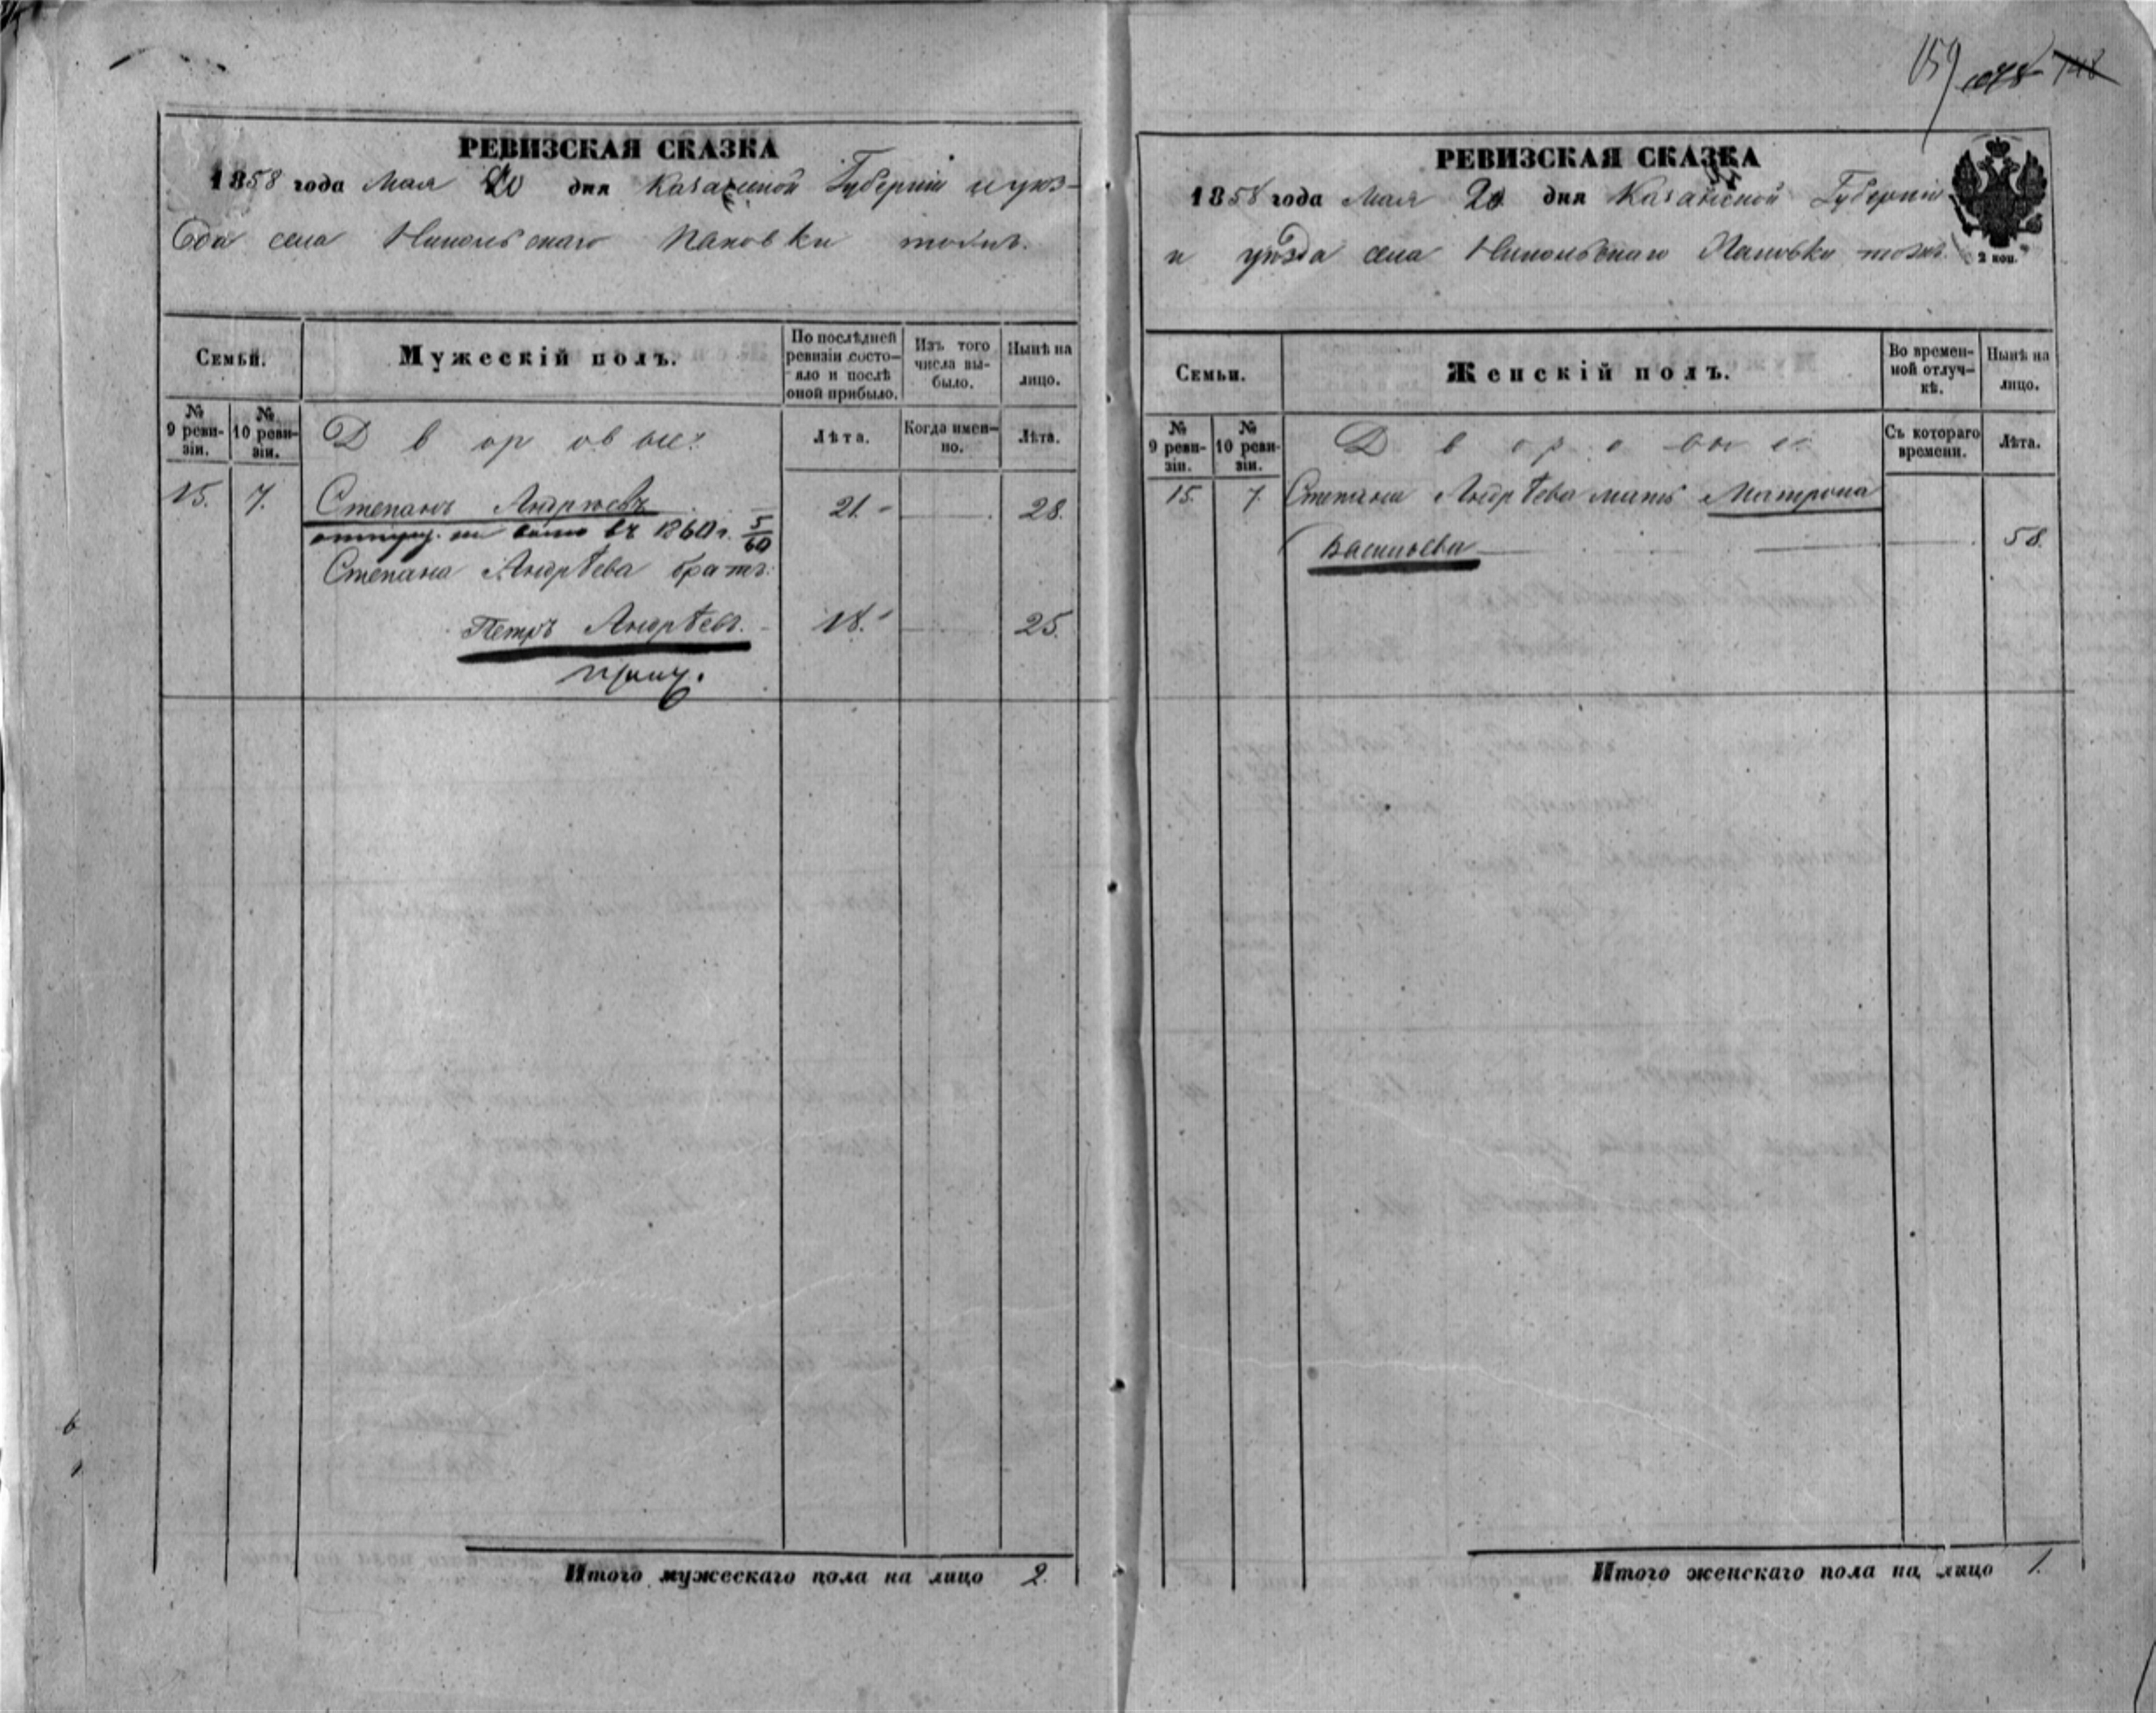 159
РЕВИЗСКАЯ СКАЗКА
1858 года Мая 20 дня Казанской Губерніи и уѣз-
да села Никольскаго Пановки тожъ.
Семьи.
Мужескій полъ.
По послѣдней ревизіи состо-яло и послѣ оной прибыло.
Изъ того числа вы-было.
Нынѣ на лицо.
№ 9 реви-зіи.
№ 10 реви-зіи.
Дворовые
Лѣта.
Когда имен-но.
Лѣта.
15. 7. Степанъ Андреевъ 21. 28.
отпущ. на волю въ 1860 г. 5/60
Степана Андрѣева братъ
Петръ Андрѣевъ. 18. 25.
Итого мужескаго пола на лицо 2.
РЕВИЗСКАЯ СКАЗКА
1858 года Мая 20 дня Казанской Губерніи
и уѣзда села Никольскаго Пановки тожъ.
2 коп.
Семьи.
Женскій полъ.
Во времен-ной отлуч-кѣ.
Нынѣ на лицо.
№ 9 реви-зіи.
№ 10 реви-зіи.
Дворовые
Съ котораго времени.
Лѣта.
15. 7. Степана Андрѣева мать Матрона
Васильева 58.
Итого женскаго пола на лицо 1.